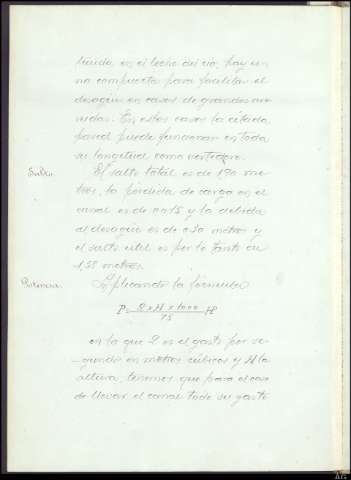 tienda en el lecho del rio, hay una
na compuerta para facilitar el
desagüe en casos de grandes ave
nidas. En estos casos la citada
pared puede funcionar en toda
su longitud como vertedero.
Salto.
El salto total es de 1,90 me
tros, la pérdida de carga en el
canal es de 0,015 y la debida
al desagüe es de 0,30 metros y
el salto util es por lo tanto de
1,58 metros.
Potencia.
Aplicando la fórmula
P = Q x H x 1000 / 75 HP
en la que Q es el gasto por se
gundo en metros cúbicos y H la
altura, tenemos que para el caso
de llevar el canal todo su gasto